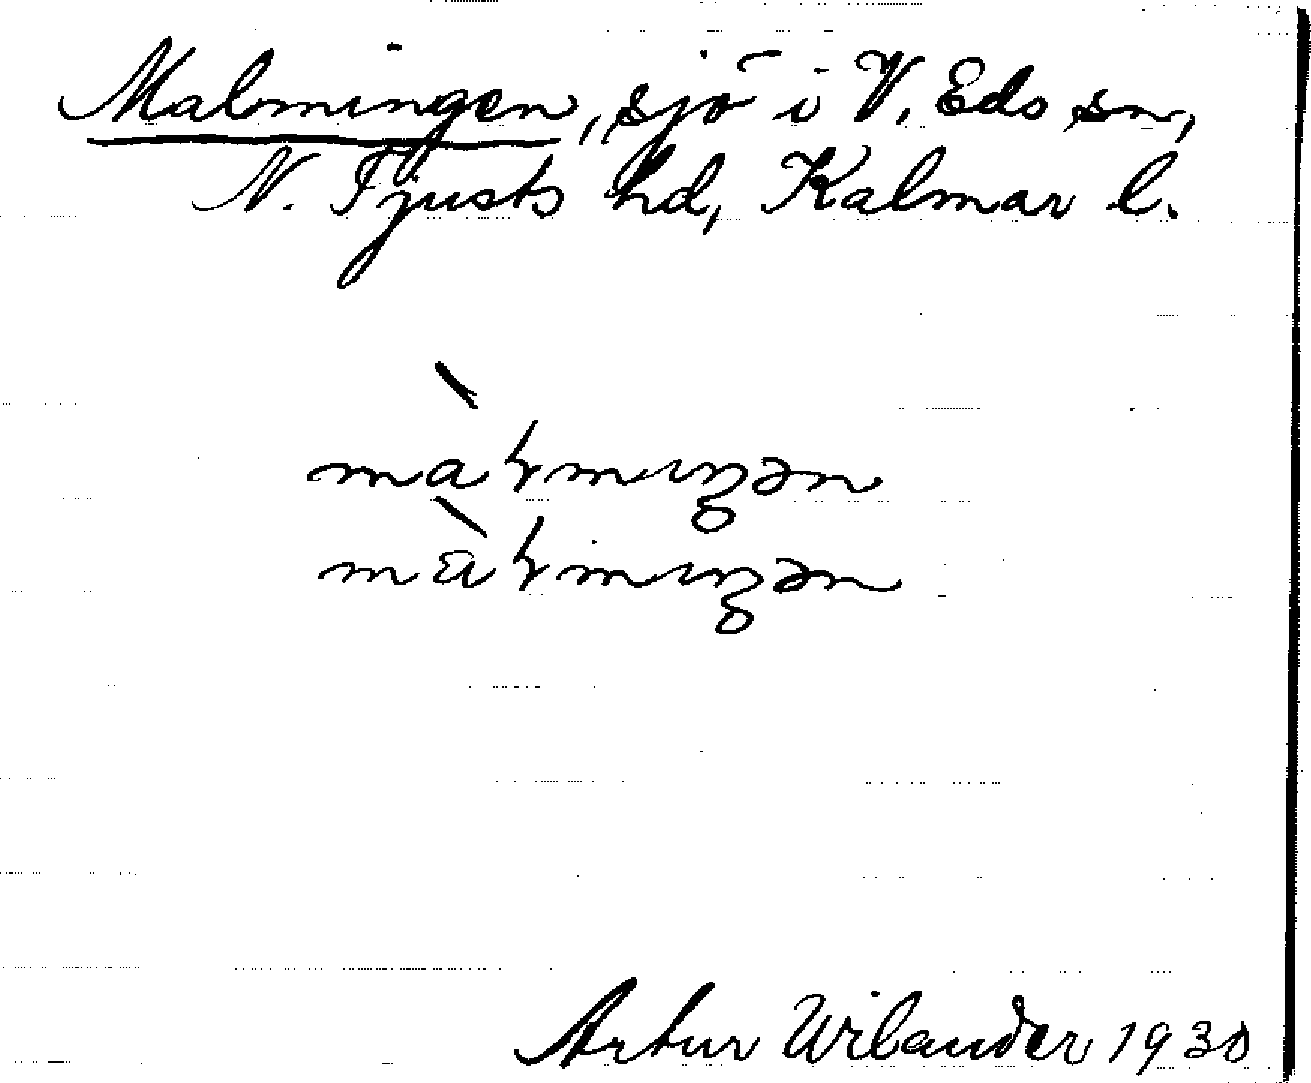 Malmingen, sjö i V. Eds sn,
N. Tjusts hd, Kalmar l.
màɫmıŋən
màɫmıŋən
Artur Wilander 1930